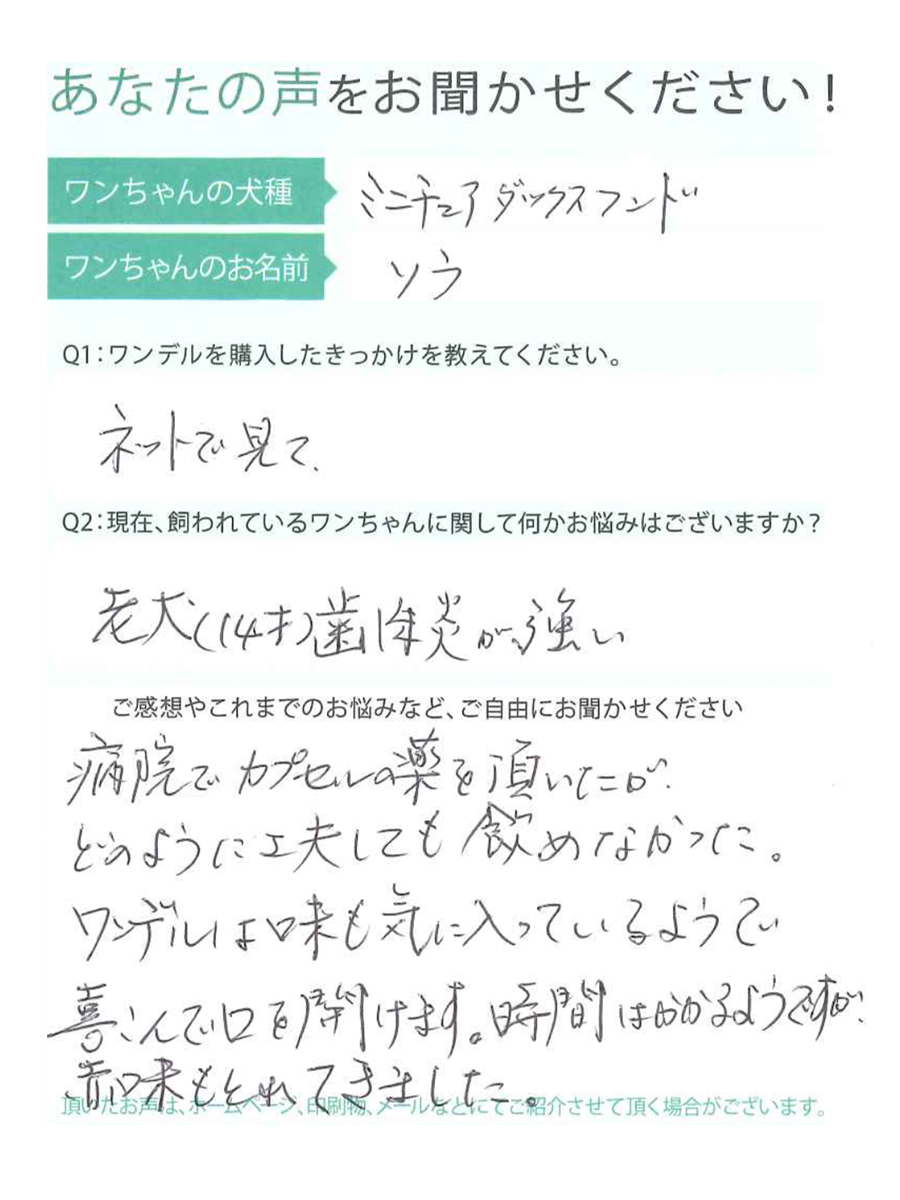 あなたの声をお聞かせください!
ワンちゃんの犬種 ミニチュアダックスフンド
ワンちゃんのお名前 ソウ
Q1:ワンデルを購入したきっかけを教えてください。
ネットで見て、
Q2:現在、飼われているワンちゃんに関して何かお悩みはございますか?
老犬(14才)歯体炎が強い
ご感想やこれまでのお悩みなど、ご自由にお聞かせください
病院でカプセルの薬を頂いたが、
どのように工夫しても飲めなかった。
ワンデルは味も気に入っているようで
喜こんで口を開けます。時間はかかるようですが、
赤味もとれてきました。
頂いたお声は、ホームページ、印刷物、メールなどにてご紹介させて頂く場合がございます。